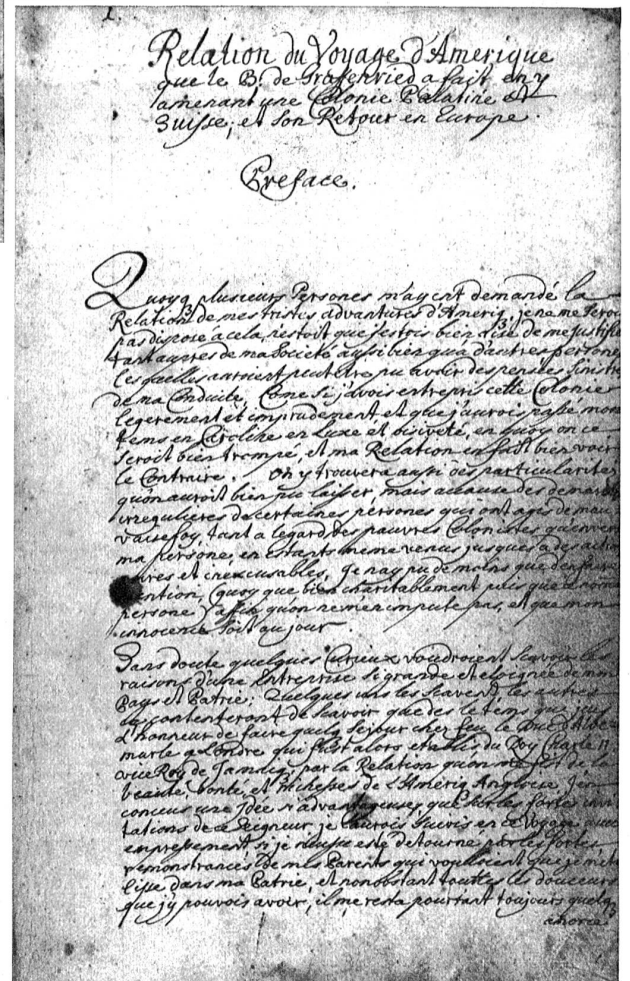 1.
Relation du Voyage d'Amerique
que le B. de Graffenried a fait en y
amenant une Colonie Palatine et
Suisse, et son Retour en Europe.
Preface.
Quoyq plusieurs Persones m'ayent demandé la
Relation de mes tristes advantures d'Ameriq. je ne me serois
pas disposé à cela, n'estoit que j'estois bien aise de me justifier
tant aupres de ma Societé aussi bien qua d'autres persones
lesquelles auroient peutetre pu avoir des pensées sinistres
de ma Conduite, Come si j'avois entrepris cette Colonie
legerement et imprudement, et que j'aurois passé mon
tems en Caroline en Luxe et oisiveté, en quoy on ce
seroit bien trompé, et ma Relation en fait bien voir
le Contraire. On y trouvera aussi des particularites
qu'on auroit bien pu laisser, mais acause des demarches
irregulieres de certaines persones qui ont agis de mau
vaise foy, tant a legard des pauvres Colonistes qu'envers
ma persone, en estants meme venus jusques a des actions
et inexcusables, je nay pu de moins que d'en faire
mention, (quoy que bien charitablement puis que
persone) affin quon ne m'en impute pas, et que mon
innocence soit au jour.
Sans doute quelques Curieux voudroient scavoir les
raisons d'une Entreprise si grande et eloignée de mon
Pays et Patrie. Quelques uns les scavent, les autres
se contenteront de scavoir que des le tems que j'eus
l'honneur de faire quelq sejour chez feu le Duc d'Albe
marle a Londre qui fust alors establis du Roy Charle II
Roy de Jamaiq, par la Relation quon me fist de la
beauté, bonté, et Richesses de l'Ameriq Angloise, j'en
concus une Idée si advantageuse, que sur les fortes invi
tations de ce Seigneur je l'aurois suivis en ce Voyage avec
empressement si je n'eusse esté detourné par les fortes
remonstrances de mes Parents qui voulloient que je m'eta
blisse dans ma Patrie, et nonobstant touttes les douceurs
que j'y pouvois avoir, il me resta pourtant toujours quelq
amorce